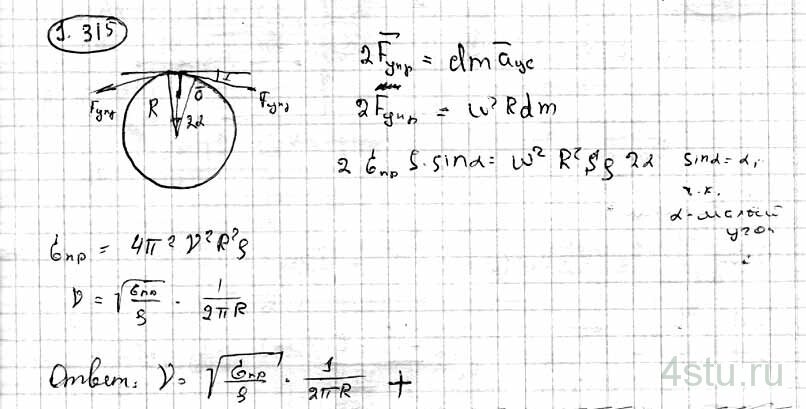 1.315
F упр
R
a
2α
α
F упр
2F̅упр = dm a̅ ус
2F̅упр = ω² R dm
2 σпр S · sinα = ω² R² S ρ 2α
sinα = α,
т.к.
α - малый
угол
σпр = 4π² ν² R² ρ
ν = √(σпр/ρ) · 1/(2πR)
Ответ: ν = √(σпр/ρ) · 1/(2πR) +
4stu.ru